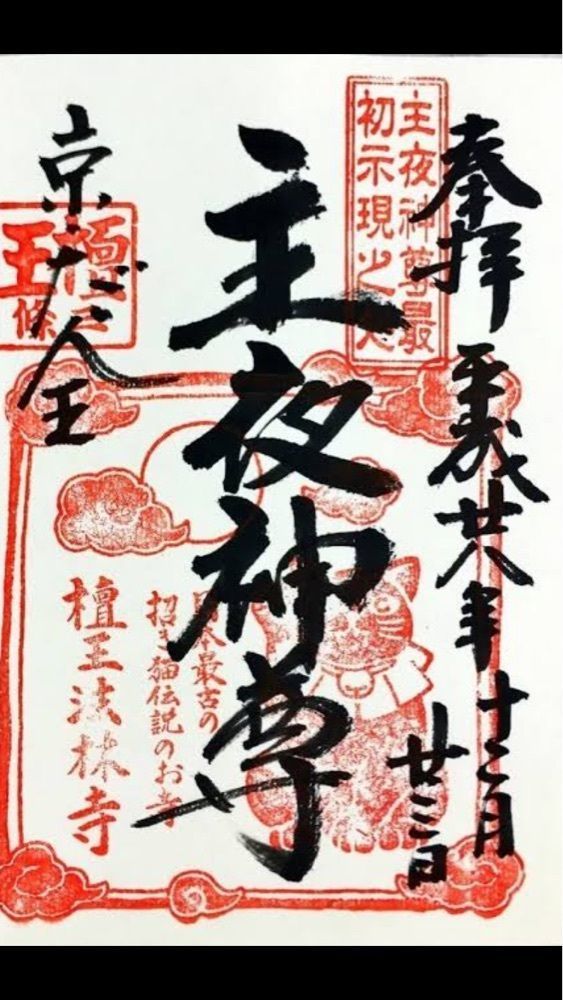 奉拝 平成廿八年 十二月
廿三日
主夜神尊最
初示現之
主夜神尊
日本最古の
招き猫伝説のお寺
檀王法林寺
京だん王
檀
王